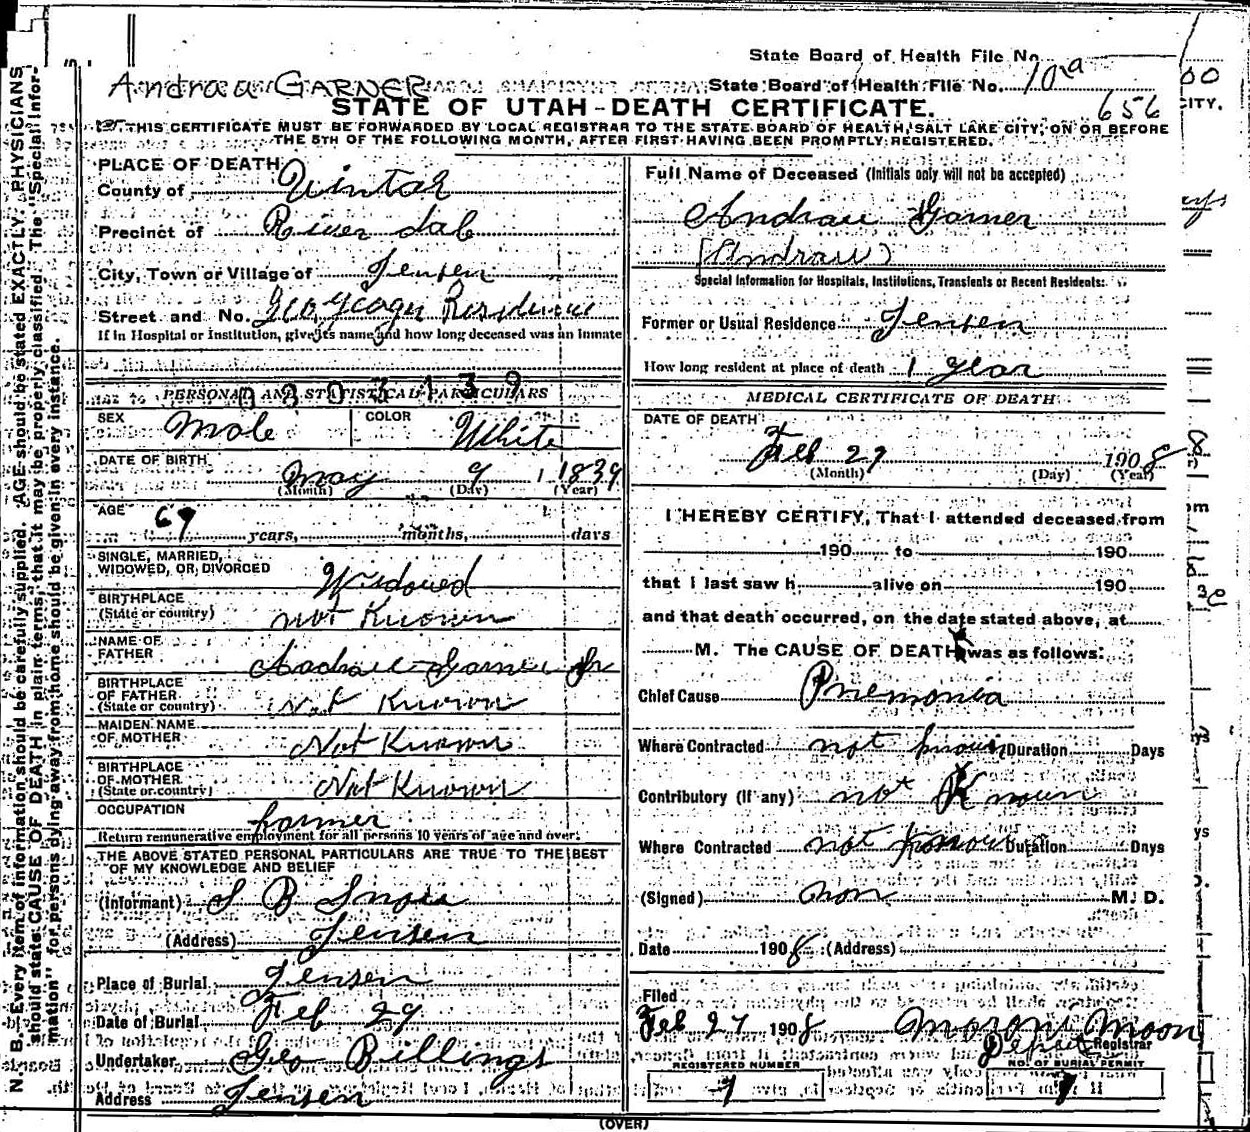 State Board of Health File No.
Andraw GARNER State Board of Health File No. 10a
STATE OF UTAH-DEATH CERTIFICATE. 656
THIS CERTIFICATE MUST BE FORWARDED BY LOCAL REGISTRAR TO THE STATE BOARD OF HEALTH, SALT LAKE CITY, ON OR BEFORE
THE 5TH OF THE FOLLOWING MONTH, AFTER FIRST HAVING BEEN PROMPTLY REGISTERED.
N. B. Every item of information should be carefully supplied. AGE should be stated EXACTLY. PHYSICIANS
should state CAUSE OF DEATH in plain terms, that it may be properly classified. The "Special Infor-
mation" for persons dying away from home should be given in every instance.
PLACE OF DEATH
County of Uintah
Precinct of River dale
City, Town or Village of Jensen
Street and No. Geo Residence
If in Hospital or Institution, give its name and how long deceased was an inmate
PERSONAL AND STATISTICAL PARTICULARS
0803139
SEX Male COLOR White
DATE OF BIRTH May 9 1839
(Month) (Day) (Year)
AGE 69 years, months, days
SINGLE, MARRIED,
WIDOWED, OR DIVORCED Widowed
BIRTHPLACE
(State or country) not Known
NAME OF
FATHER Andrae Garner Sr
BIRTHPLACE
OF FATHER
(State or country) Not Known
MAIDEN NAME
OF MOTHER Not Known
BIRTHPLACE
OF MOTHER
(State or country) Not Known
OCCUPATION farmer
Return remunerative employment for all persons 10 years of age and over.
THE ABOVE STATED PERSONAL PARTICULARS ARE TRUE TO THE BEST
OF MY KNOWLEDGE AND BELIEF
(Informant) S B Snow
(Address) Jensen
Place of Burial Jensen
Date of Burial Feb 29
Undertaker Geo Billings
Address Jensen
Full Name of Deceased (Initials only will not be accepted)
Andrau Garner
(Andraw)
Special Information for Hospitals, Institutions, Transients or Recent Residents:
Former or Usual Residence Jensen
How long resident at place of death 1 year
MEDICAL CERTIFICATE OF DEATH
DATE OF DEATH
Feb 27 1908
(Month) (Day) (Year)
I HEREBY CERTIFY, That I attended deceased from
190 to 190
that I last saw h alive on 190
and that death occurred, on the date stated above, at
M. The CAUSE OF DEATH was as follows:
Chief Cause Pnemonia
Where Contracted not known Duration Days
Contributory (If any) not Known
Where Contracted not known Duration Days
(Signed) non M. D.
Date 1908 (Address)
Filed
Feb 27 1908 Moroni Moon
Deputy Registrar
REGISTERED NUMBER NO. OF BURIAL PERMIT
1 1
(OVER)